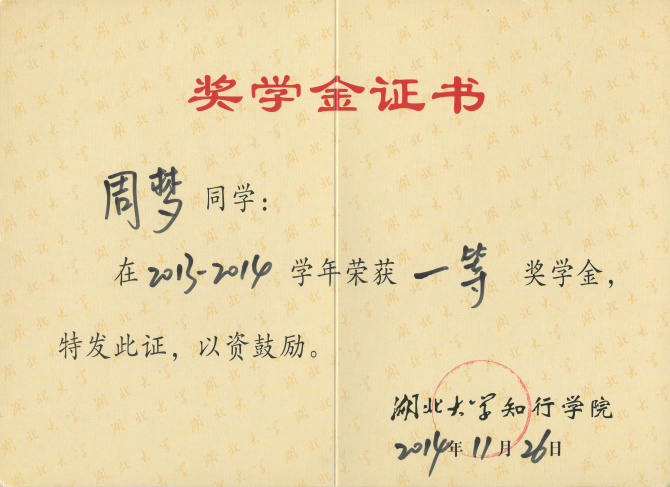 奖学金证书
周梦同学：
在2013-2014学年荣获一等奖学金，
特发此证，以资鼓励。
湖北大学知行学院
2014年11月26日